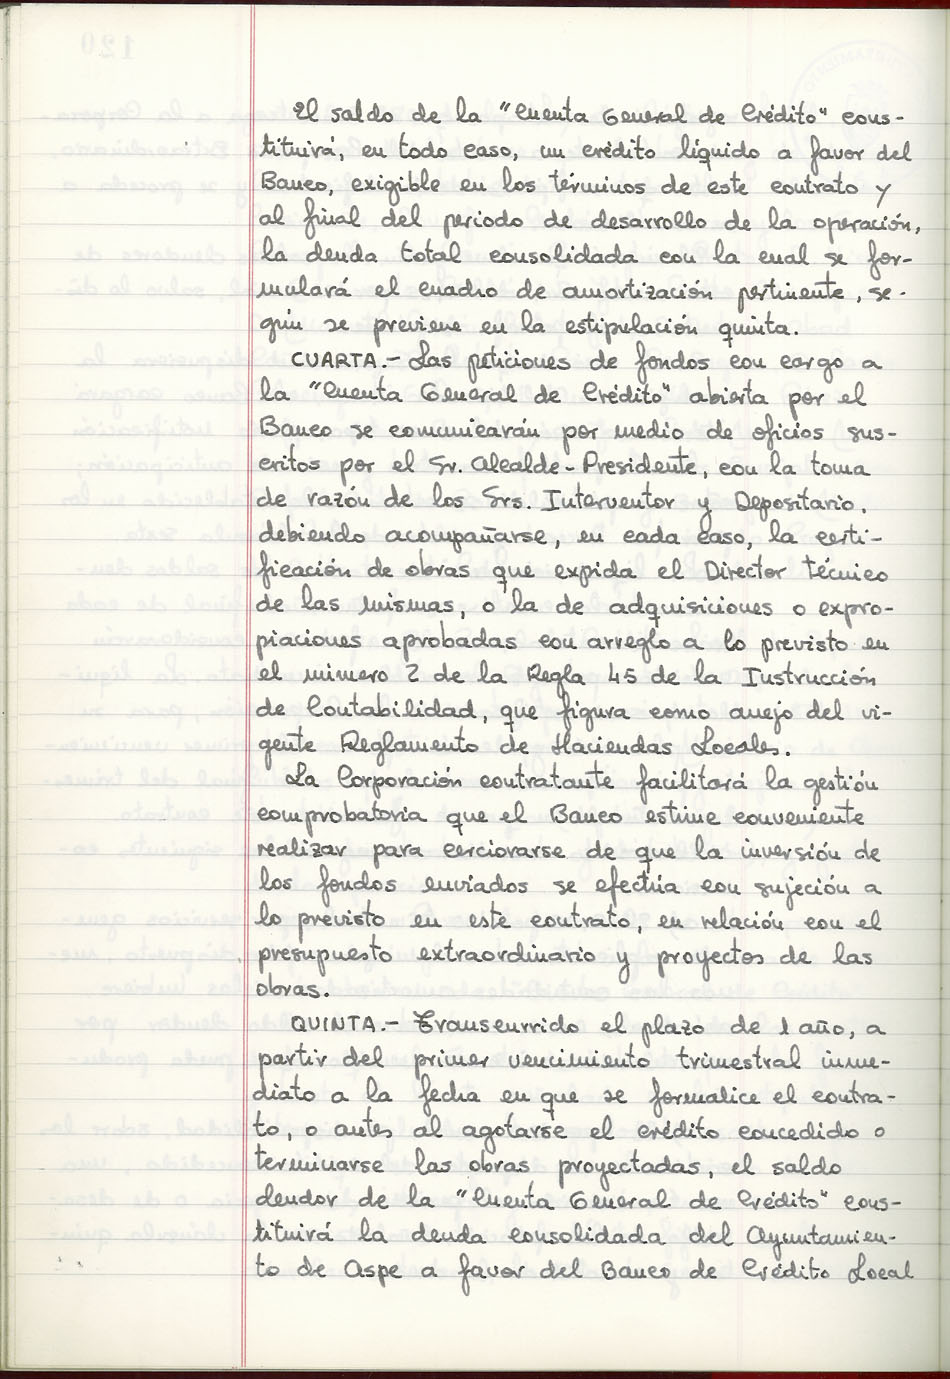 El saldo de la "Cuenta General de Crédito" cons-
tituirá, en todo caso, un crédito líquido a favor del
Banco, exigible en los términos de este contrato y
al final del periodo de desarrollo de la operación,
la deuda total consolidada con la cual se for-
mulará el cuadro de amortización pertinente, se-
gún se previene en la estipulación quinta.
CUARTA.- Las peticiones de fondos con cargo a
la "Cuenta General de Crédito" abierta por el
Banco se comunicarán por medio de oficios sus-
critos por el Sr. Alcalde-Presidente, con la toma
de razón de los Srs. Interventor y Depositario,
debiendo acompañarse, en cada caso, la certi-
ficación de obras que expida el Director técnico
de las mismas, o la de adquisiciones o expro-
piaciones aprobadas con arreglo a lo previsto en
el número 2 de la Regla 45 de la Instrucción
de Contabilidad, que figura como anejo del vi-
gente Reglamento de Haciendas Locales.
La Corporación contratante facilitará la gestión
comprobatoria que el Banco estime conveniente
realizar para cerciorarse de que la inversión de
los fondos enviados se efectúa con sujeción a
lo previsto en este contrato, en relación con el
presupuesto extraordinario y proyectos de las
obras.
QUINTA.- Transcurrido el plazo de 1 año, a
partir del primer vencimiento trimestral inme-
diato a la fecha en que se formalice el contra-
to, o antes al agotarse el crédito concedido o
terminarse las obras proyectadas, el saldo
deudor de la "Cuenta General de Crédito" cons-
tituirá la deuda consolidada del Ayuntamien-
to de Aspe a favor del Banco de Crédito Local